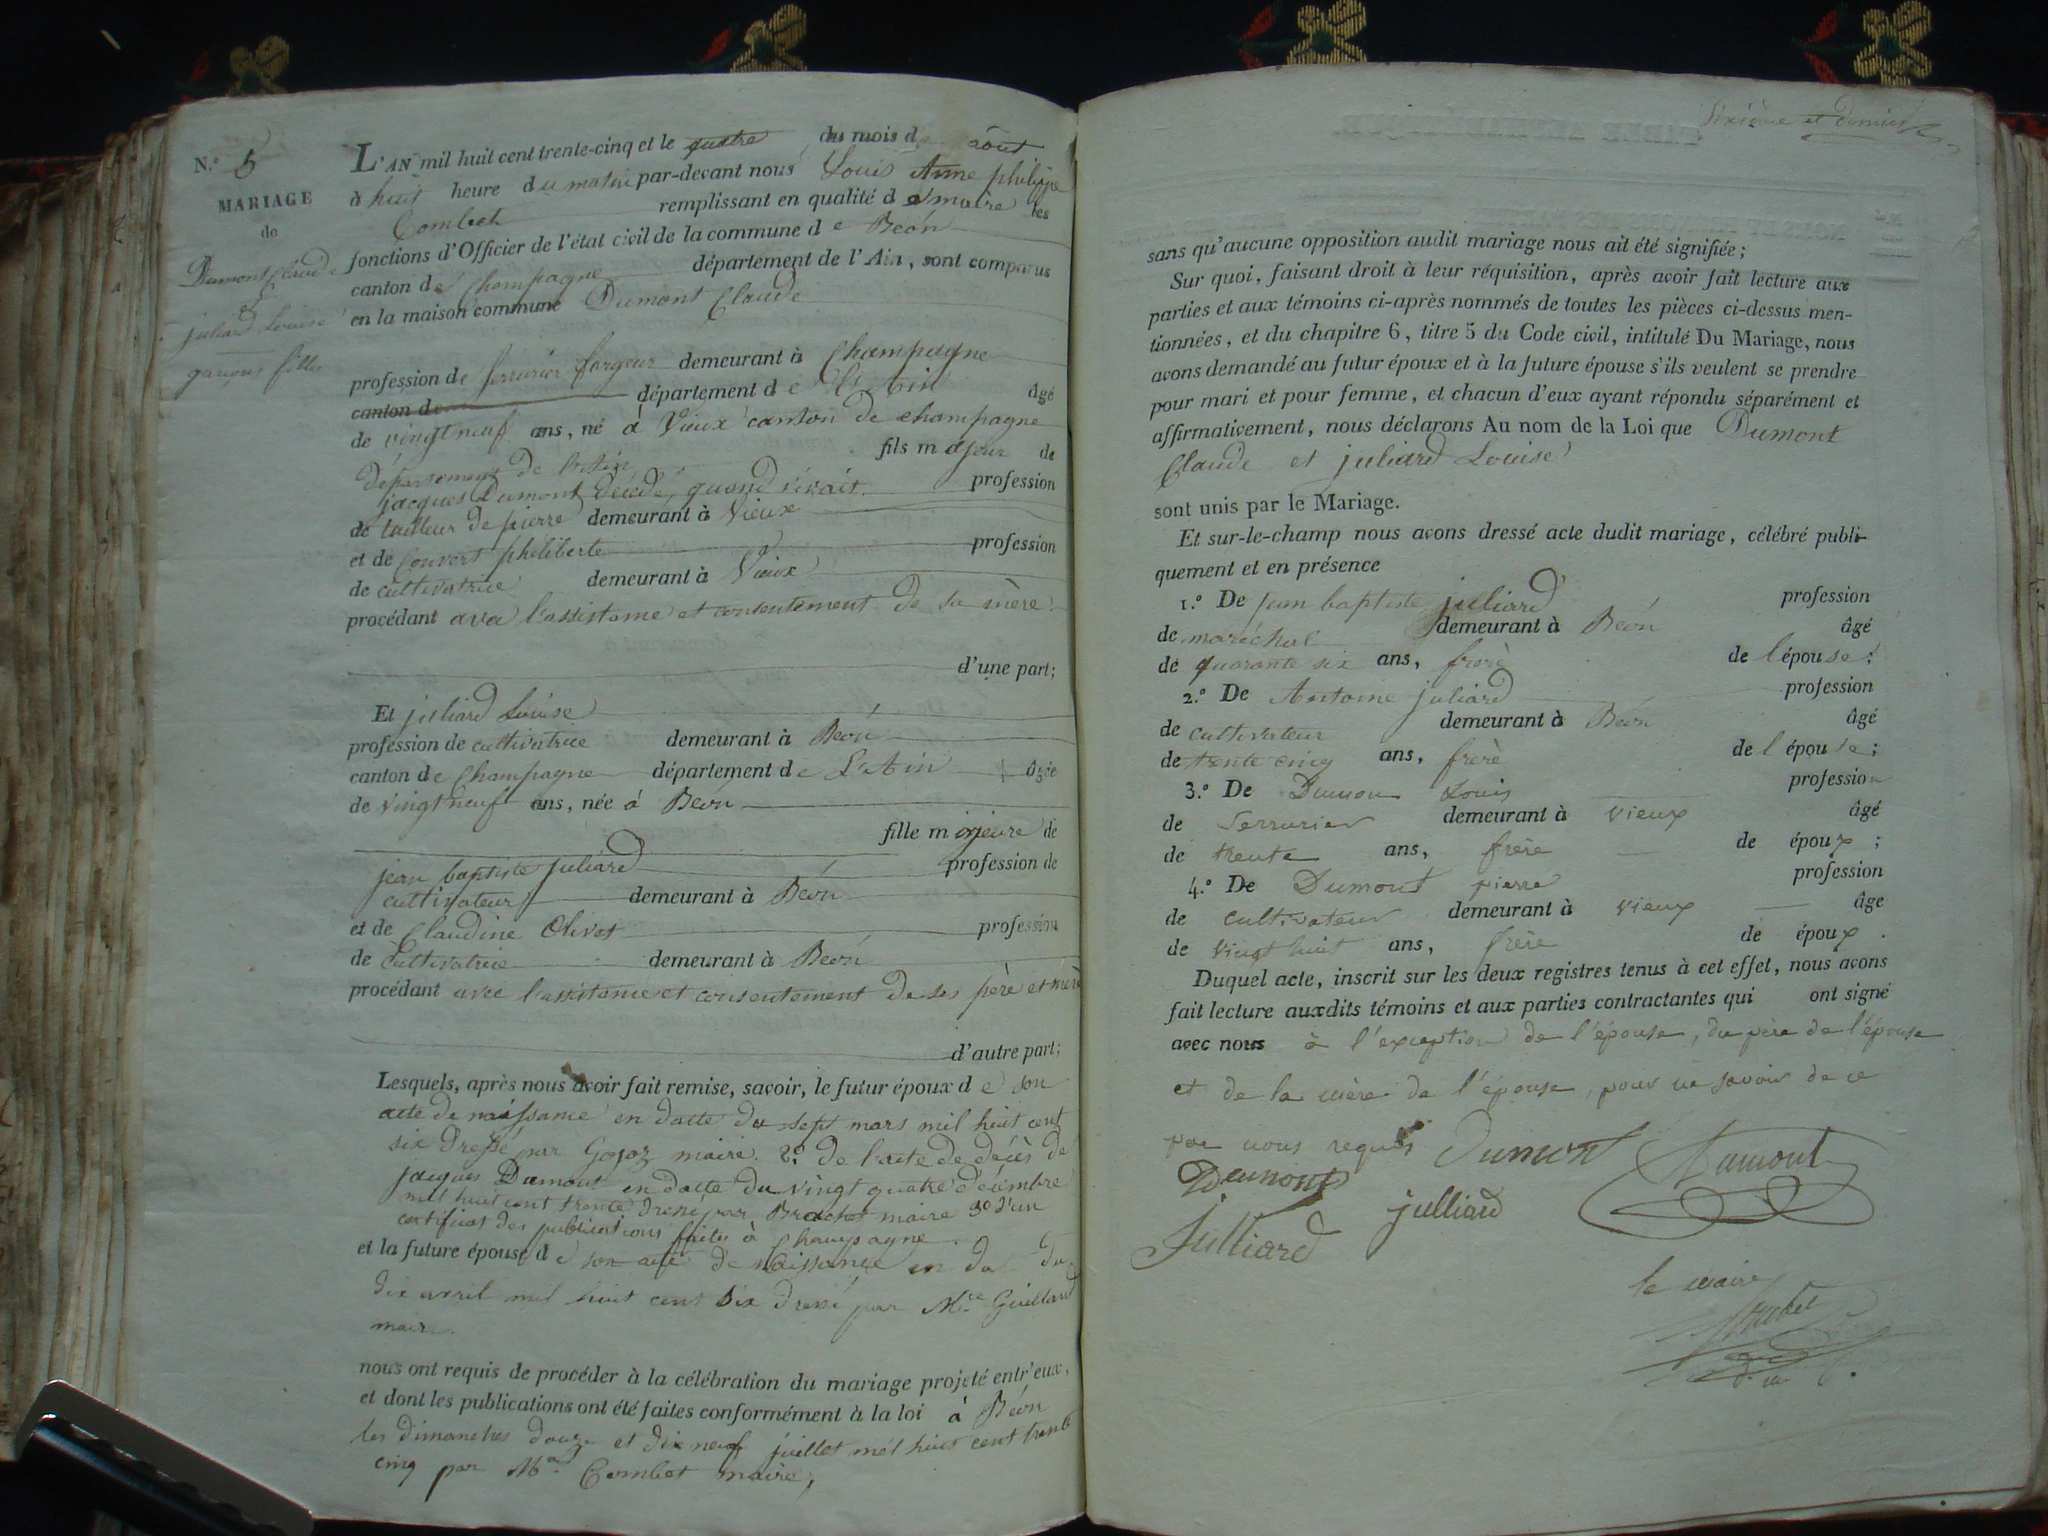 N.º 5
MARIAGE
de
Dumont Claude
&
juliard Louise
garçons filles
L'AN mil huit cent trente-cinq et le quatre du mois d août
à huit heure du matin par-devant nous Louis Anne philippe
Combet remplissant en qualité de maire les
fonctions d'Officier de l'état civil de la commune de Béon
canton de Champagne département de l'Ain, sont comparus
en la maison commune Dumont Claude
profession de serrurier forgeur demeurant à Champagne
canton de département de l'Ain âgé
de vingt neuf ans, né à Vieux canton de champagne
département de l'Ain fils majeur de
jacques Dumont décédé, quand vivait profession
de tailleur de pierre demeurant à Vieux
et de Couvert philiberte profession
de cultivatrice demeurant à Vieux
procédant avec l'assistance et consentement de sa mère
d'une part;
Et juliard Louise
profession de cultivatrice demeurant à Béon
canton de Champagne département de L'Ain âgée
de vingt neuf ans, née à Béon
fille majeure de
jean baptiste juliard profession de
cultivateur demeurant à Béon
et de Claudine Olivet profession
de cultivatrice demeurant à Béon
procédant avec l'assistance et consentement de ses père et mère
d'autre part;
Lesquels, après nous avoir fait remise, savoir, le futur époux de son
acte de naissance en datte du sept mars mil huit cent
six dressé par Gojoz maire. 2.º de l'acte de décès de
jacques Dumont en datte du vingt quatre décembre
mil huit cent trente dressé par Brachet maire 3º d'un
certificat des publications faites à Champagne.
et la future épouse de son acte de naissance en da du
dix avril mil huit cent six dressé par Mre Guilland
maire.
nous ont requis de procéder à la célébration du mariage projeté entr'eux,
et dont les publications ont été faites conformément à la loi à Béon
les dimanches douze et dix neuf juillet mil huit cent trente
cinq par Mr. Combet maire,
sixième et dernier
sans qu'aucune opposition audit mariage nous ait été signifiée;
Sur quoi, faisant droit à leur réquisition, après avoir fait lecture aux
parties et aux témoins ci-après nommés de toutes les pièces ci-dessus men-
tionnées, et du chapitre 6, titre 5 du Code civil, intitulé Du Mariage, nous
avons demandé au futur époux et à la future épouse s'ils veulent se prendre
pour mari et pour femme, et chacun d'eux ayant répondu séparément et
affirmativement, nous déclarons Au nom de la Loi que Dumont
Claude et juliard Louise
sont unis par le Mariage.
Et sur-le-champ nous avons dressé acte dudit mariage, célébré publi-
quement et en présence
1.º De jean baptiste juliard profession
de maréchal demeurant à Béon âgé
de quarante six ans, frère de l'épouse;
2.º De Antoine juliard profession
de cultivateur demeurant à Béon âgé
de trente cinq ans, frère de l'épouse;
3.º De Dumon Louis profession
de serrurier demeurant à vieux âgé
de trente ans, frère de époux;
4.º De Dumont pierre profession
de cultivateur demeurant à vieux âge
de vingt huit ans, frère de époux.
Duquel acte, inscrit sur les deux registres tenus à cet effet, nous avons
fait lecture auxdits témoins et aux parties contractantes qui ont signé
avec nous à l'exception de l'épouse, du père de l'épouse
et de la mère de l'épouse, pour ne savoir de ce
par nous requis Dumont Dumont
Dumont
julliard
Julliard
le maire